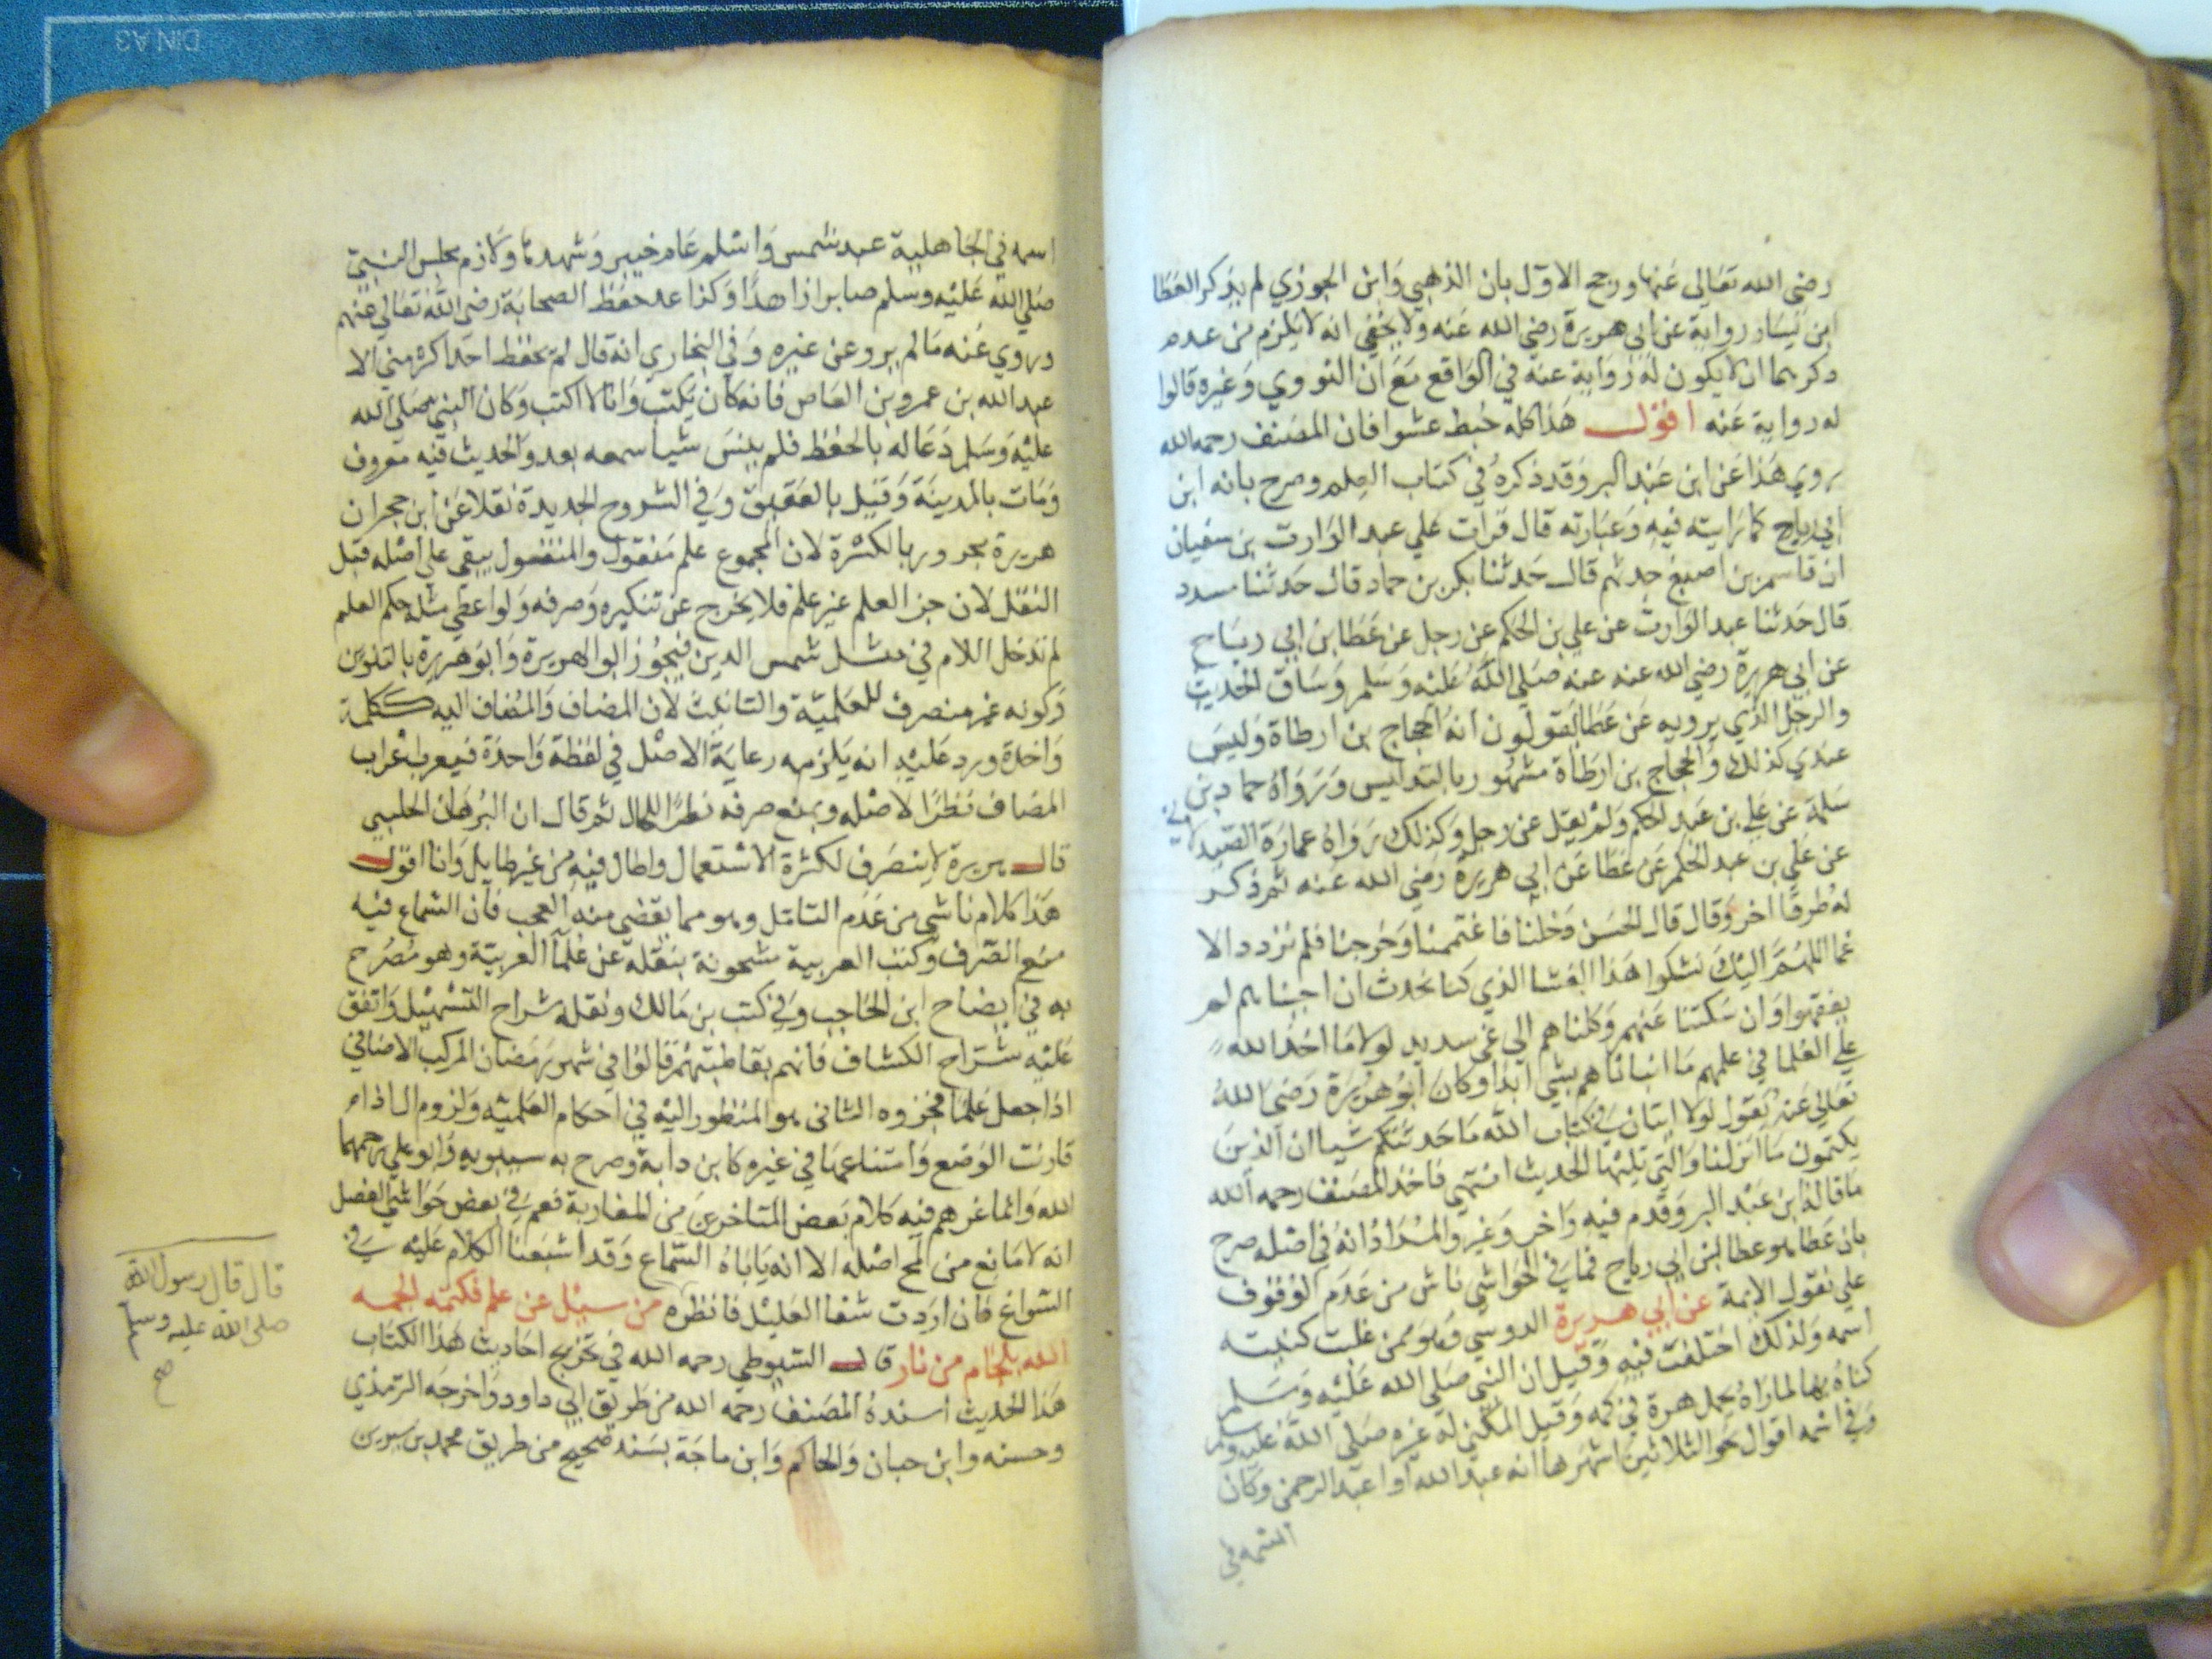 رضي الله تعالى عنها ورجح الاول بان الذهبي وابن الجوزي لم يذكر العطا
ابن يسار رواية عن ابي هريرة رضي الله عنه ولا يخفي انه لا يلزم من عدم
ذكرهما ان لا يكون له رواية عنه في الواقع مع ان النووي وغيره قالوا
له رواية عنه اقول هذا كله خبط عشوا فان المصنف رحمه الله
روي هذا عن ابن عبد البر وقد ذكره في كتاب العلم وصرح بانه ابن
ابي رباح كما رايته فيه وعبارته قال قرات علي عبد الوارث بن سفيان
ان قاسم بن اصبغ حدثهم قال حدثنا بكر بن حماد قال حدثنا مسدد
قال حدثنا عبد الوارث عن علي بن الحكم عن رجل عن عطا بن ابي رباح
عن ابي هريرة رضي الله عنه عنه صلي الله عليه وسلم وساق الحديث
والرجل الذي يرويه عن عطا يقولون انه الحجاج بن ارطاة وليس
عندي كذلك والحجاج بن ارطاة مشهور بالتدليس ورواه حماد بن
سلمة عن علي بن عبد الحكم ولم يقل عن رجل وكذلك رواه عمارة الصيدلاني
عن علي بن عبد الحكم عن عطا عن ابي هريرة رضي الله عنه ثم ذكر
له طرقا اخر وقال قال الحسن دخلنا فاغتممنا وخرجنا فلم نزدد الا
غما اللهم اليك نشكوا هذا الغشا الذي كنا نحدث ان اجبناهم لم
يفقهوا وان سكتنا عنهم وكلناهم الي غي سديد لولا ما اخذ الله
علي العلما في علمهم ما انبانا هم بشي ابدا وكان ابو هريرة رضي الله
تعالي عنه يقول لولا ايتان في كتاب الله ما حدثتكم شيا ان الذين
يكتمون ما انزلنا والتي تليها الحديث انتهي فاخذ المصنف رحمه الله
ما قاله ابن عبد البر وقدم فيه واخر وغير والمراد انه في اصله صرح
بان عطا هو عطا ابن ابي رباح فما في الحواشي ناش من عدم الوقوف
علي نقول الايمة عن ابي هريرة الدوسي وهو ممن غلبت كنيته
اسمه ولذلك اختلفت فيه وقيل ان النبي صلي الله عليه وسلم
كناه بها لما راه يحمل هرة في كمه وقيل المكني له غيره صلي الله عليه وسلم
وفي اسمه اقوال نحو الثلاثين اشهرها انه عبد الله او عبد الرحمن وكان
اسمه في
اسمه في الجاهلية عبد شمس واسلم عام خيبر وشهدها ولازم مجلس النبي
صلي الله عليه وسلم صابرا زاهدا وكذا عد حفظ الصحابة رضي الله تعالي عنهم
وروي عنه مالم يرو عن غيره وفي البخاري انه قال لم يحفظ احد اكثر مني الا
عبد الله بن عمرو بن العاص فانه كان يكتب وانا لا اكتب وكان النبي صلي الله
عليه وسلم دعا له بالحفظ فلم ينس شيا سمعه بعد والحديث فيه معروف
ومات بالمدينة وقيل بالعقيق وفي الشروح الجديدة نقلا عن ابن حجر ان
هريرة مجرور بالكسرة لان المجموع علم منقول والمنقول يبقي علي اصله قبل
النقل لان جز العلم غير علم فلا يخرج عن تنكيره وصرفه ولو اعطي مثله حكم العلم
لم تدخل اللام في مثل شمس الدين فيجوز ابو الهريرة وابو هريرة بالتنوين
وكونه غير منصرف للعلمية والتانيث لان المضاف والمضاف اليه ككلمة
واحدة ورد عليه انه يلزمه رعاية الاصل في لفظة واحدة فيعرب اعراب
المضاف نظرا لاصله ويمنع صرفه نظرا للحال ثم قال ان البرهان الحلبي
قال هريرة لا ينصرف لكثرة الاستعمال واطال فيه من غير طايل وانا اقول
هذا كلام ناشي من عدم التامل وهو مما يقضي منه العجب فان السماع فيه
منع الصرف وكتب العربية مشحونة بنقله عن علما العربية وهو مصرح
به في ايضاح ابن الحاجب وفي كتب بن مالك ونقله شراح التسهيل واتفق
عليه شراح الكشاف فانهم بقاطبتهم قالوا في شهر رمضان المركب الاضافي
اذا جعل علما فجزوه الثاني هو المنظور اليه في احكام العلمية ولزوم ال اذا
قارنت الوضع وامتناعها في غيره كابن داية وصرح به سيبويه وابو علي رحمهما
الله وانما غرهم فيه كلام بعض المتاخرين من المغاربة فعم في بعض حواشي المفصل
انه لا مانع من لمح اصله الا انه ياباه السماع وقد اشبعنا الكلام عليه في
السوانح فان اردت شفا الغليل فانظره من سيل عن علم فكتمه الجمه
الله بلجام من نار قال السيوطي رحمه الله في تخريج احاديث هذا الكتاب
هذا الحديث اسنده المصنف رحمه الله من طريق ابي داود واخرجه الترمذي
وحسنه وابن حبان والحاكم وابن ماجة بسند صحيح من طريق محمد بن سيرين
قال قال رسول الله
صلى الله عليه وسلم
صح
DIN A3